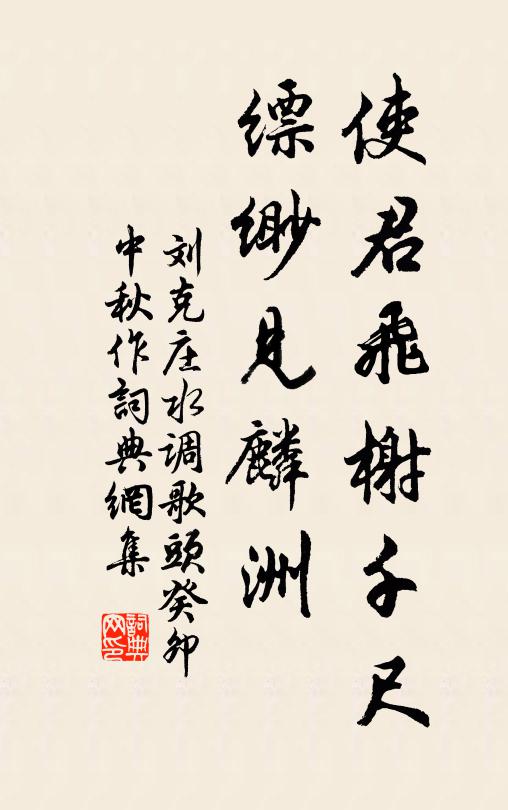 使君飛榭千尺
縹緲見麟洲
刘克庄水调歌頭癸卯
中秋作詞典網集
詞典网印